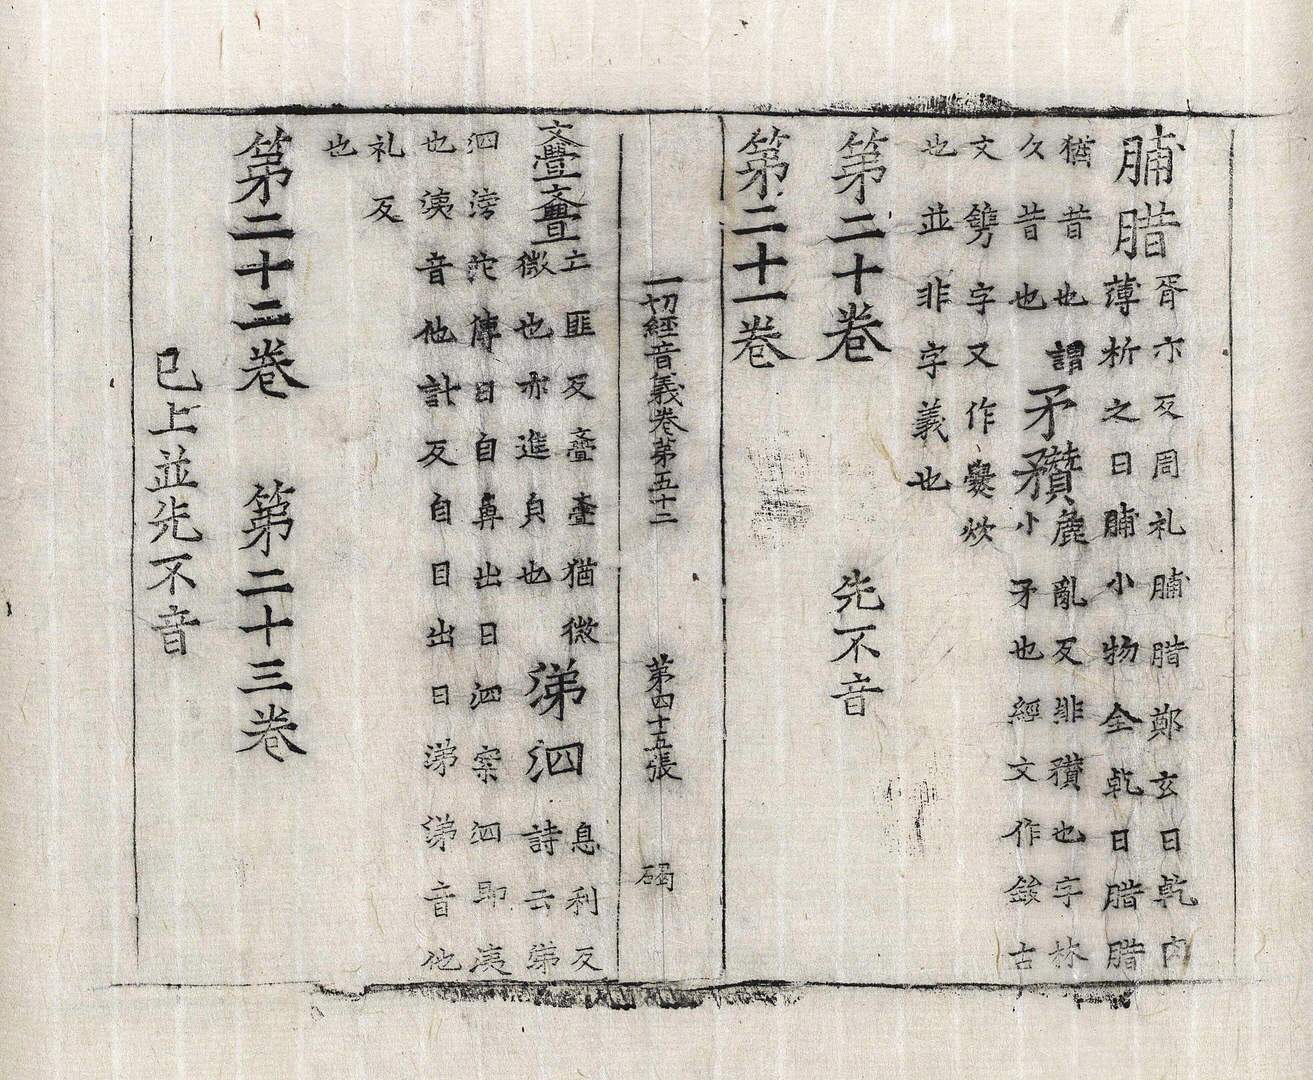 脯腊胥亦反周礼脯腊鄭玄曰乹肉
薄析之曰脯小物全乹曰腊腊
猶昔也謂矛矟麁亂反非穳也字林
久昔也小矛也經文作鋑古
文鎸字又作爨炊
也並非字義也
第二十卷 先不音
第二十一卷
一切經音義卷第五十二 第四十五張 碣
亹亹亡匪反亹亹猶微
微也亦進皃也
涕泗息利反
詩云涕
泗滂沱傳曰自鼻出曰泗案泗即洟
也洟音他計反自目出曰涕涕音他
礼反
也
第二十二卷 第二十三卷
已上並先不音